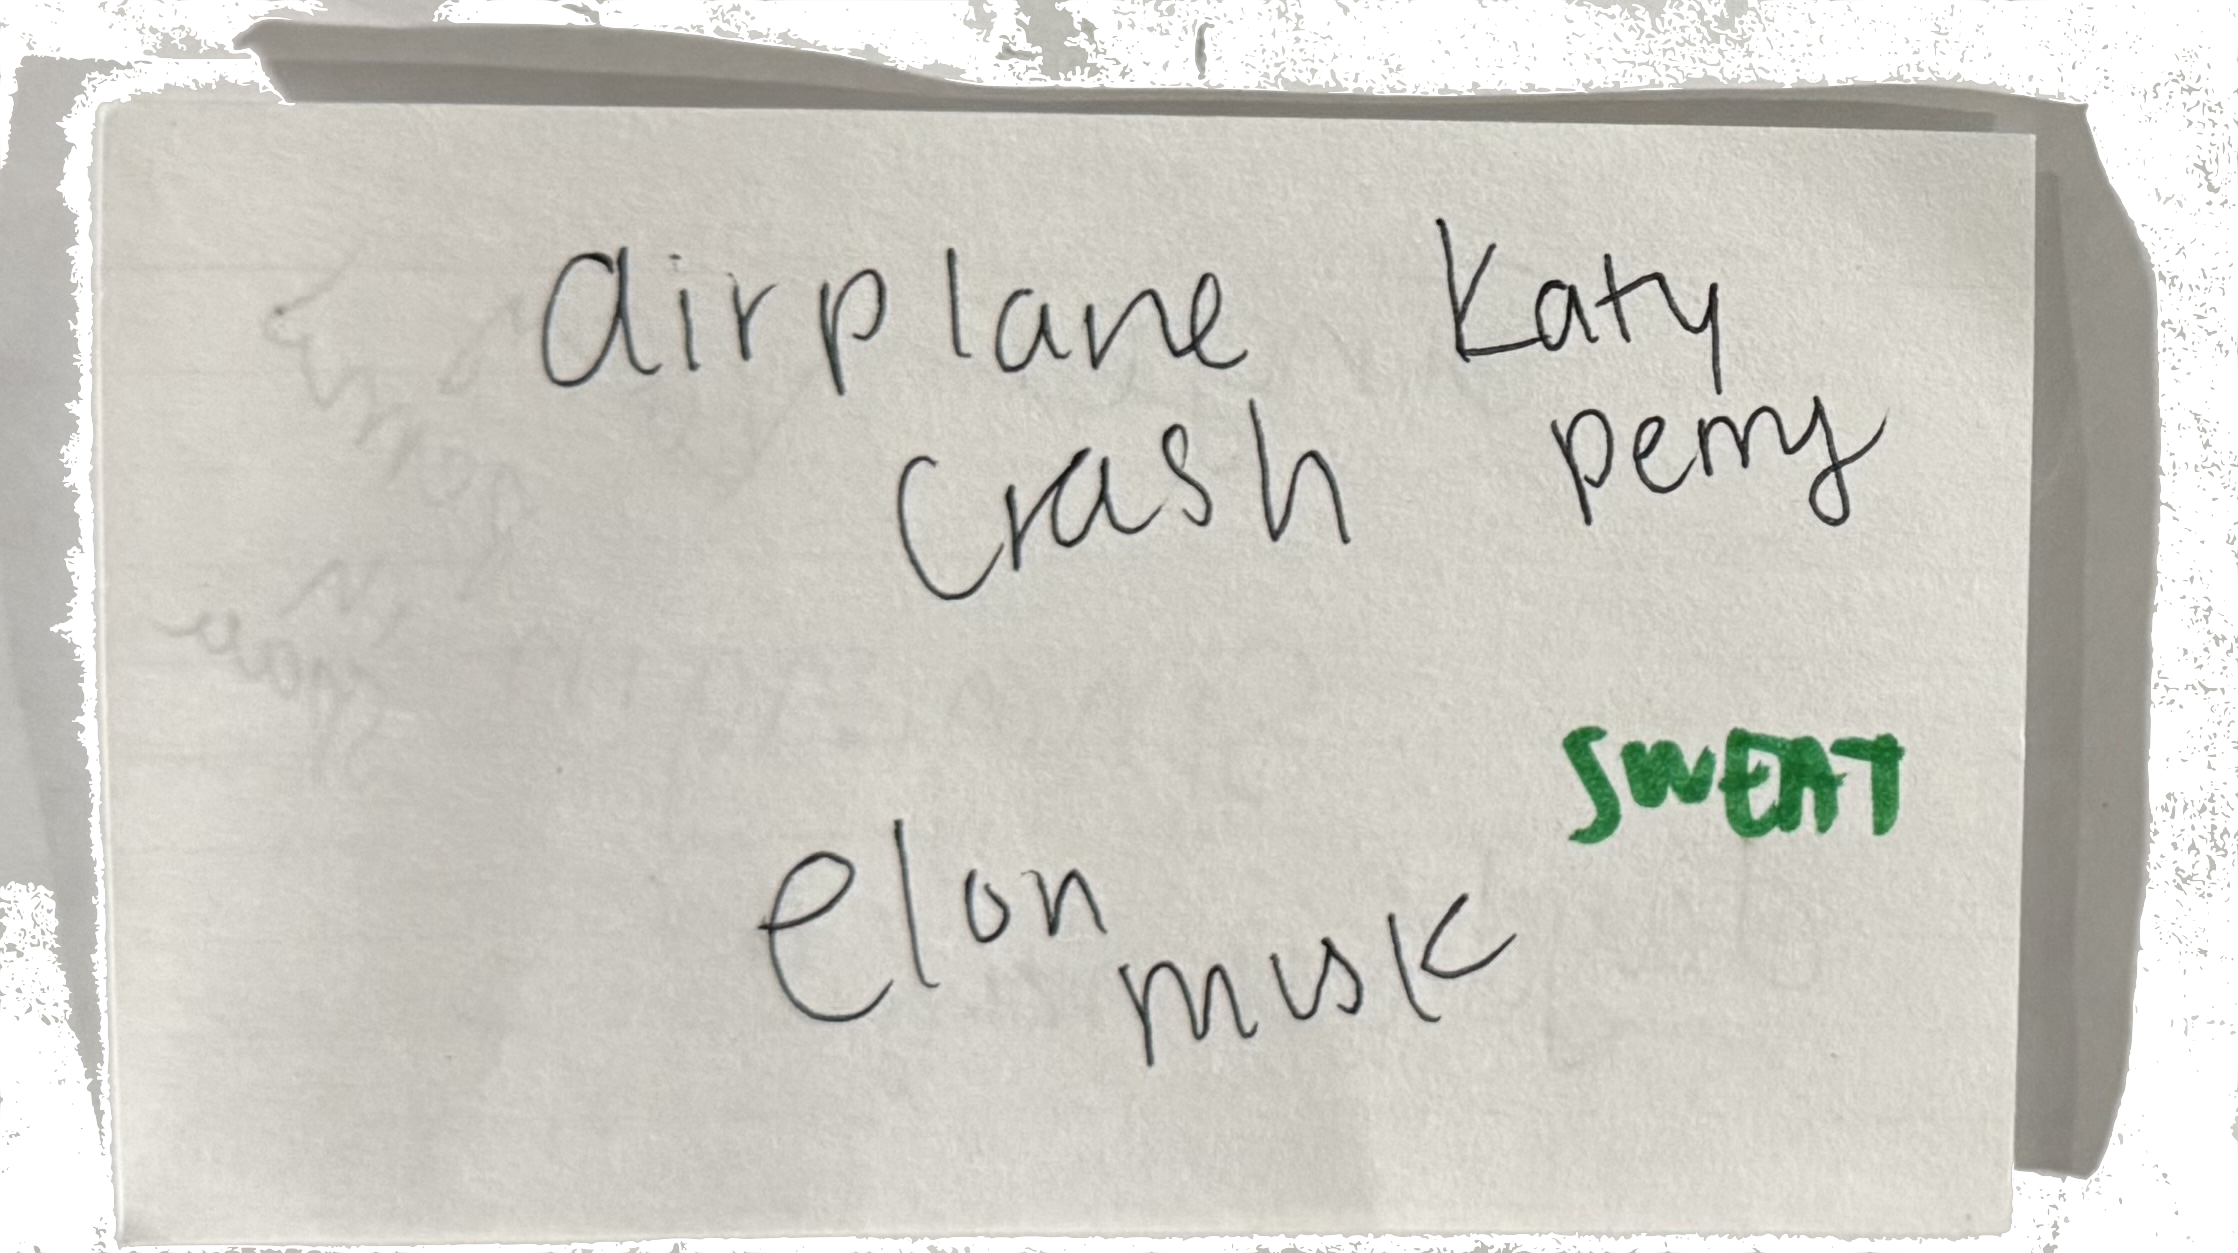 airplane
crash
Katy
perry
SWEAT
elon
musk